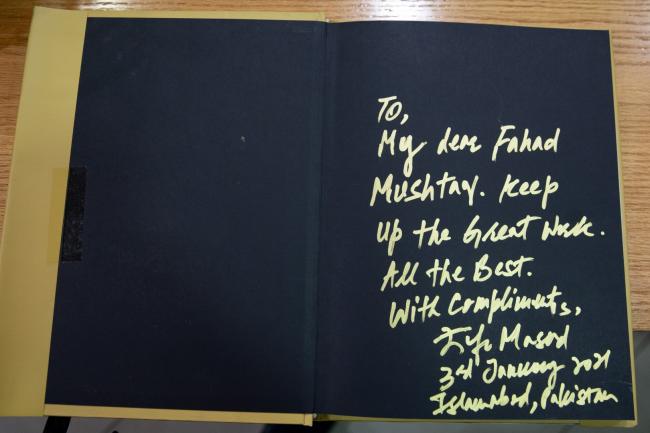 To,
My dear Fahad
Mushtaq. Keep
up the Great Work.
All the Best.
With Compliments,
Masod
3rd January 2021
Islamabad, Pakistan